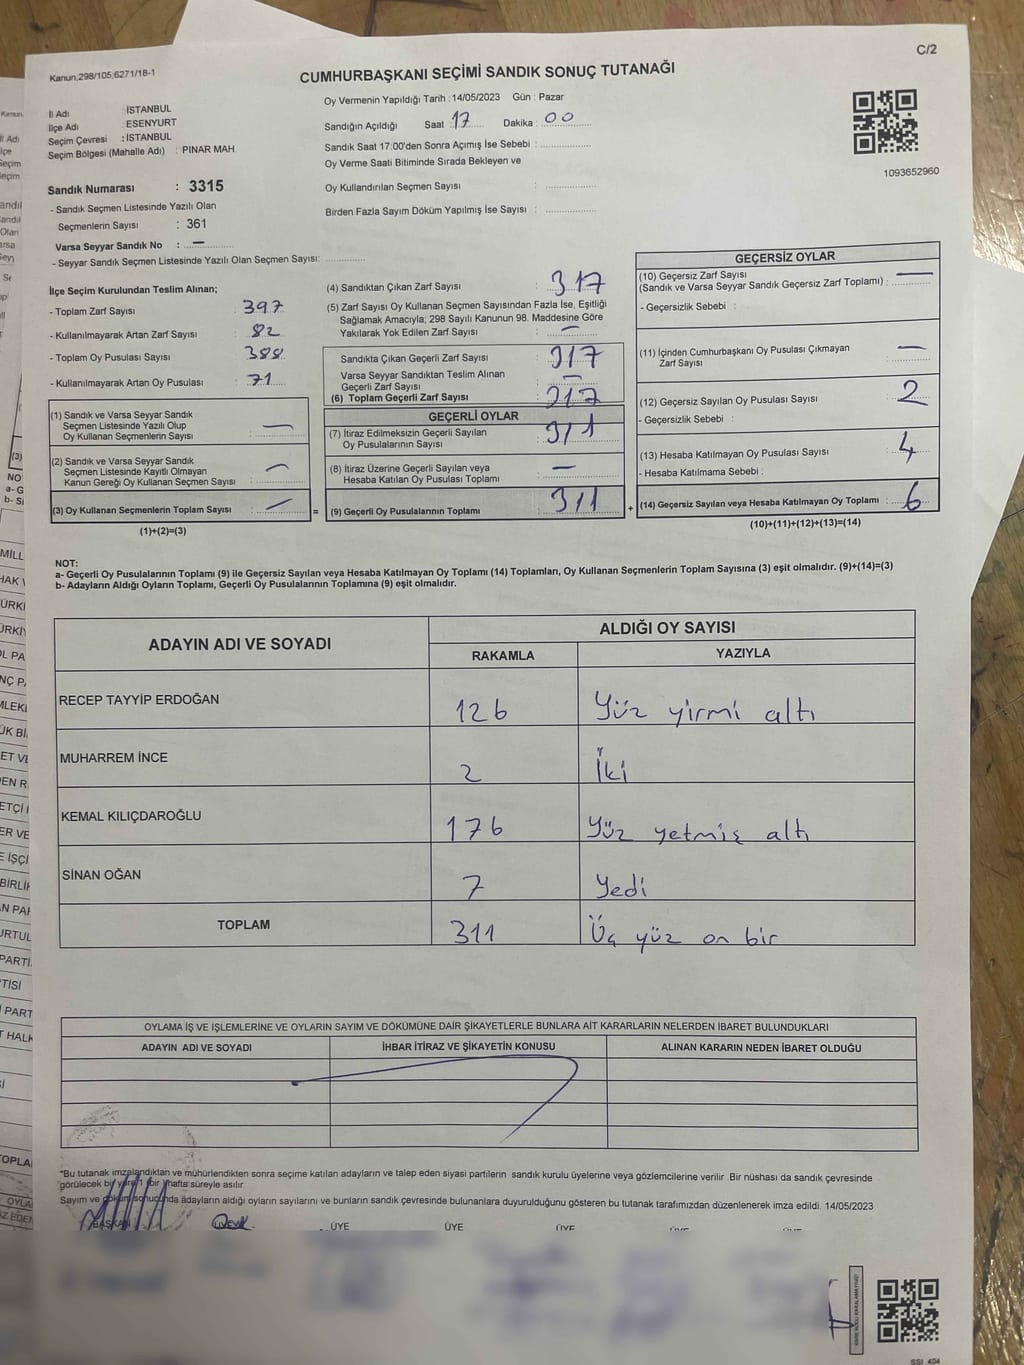 C/2
Kanun;298/105;6271/18-1
CUMHURBAŞKANI SEÇİMİ SANDIK SONUÇ TUTANAĞI
İl Adı : İSTANBUL
İlçe Adı : ESENYURT
Seçim Çevresi : İSTANBUL
Seçim Bölgesi (Mahalle Adı) : PINAR MAH.
Sandık Numarası : 3315
- Sandık Seçmen Listesinde Yazılı Olan
Seçmenlerin Sayısı : 361
Varsa Seyyar Sandık No : —
- Seyyar Sandık Seçmen Listesinde Yazılı Olan Seçmen Sayısı:
Oy Vermenin Yapıldığı Tarih : 14/05/2023 Gün : Pazar
Sandığın Açıldığı Saat 17 Dakika : 00
Sandık Saat 17:00'den Sonra Açımış İse Sebebi :
Oy Verme Saati Bitiminde Sırada Bekleyen ve
Oy Kullandırılan Seçmen Sayısı :
Birden Fazla Sayım Döküm Yapılmış İse Sayısı :
1093652960
İlçe Seçim Kurulundan Teslim Alınan;
- Toplam Zarf Sayısı : 397
- Kullanılmayarak Artan Zarf Sayısı : 82
- Toplam Oy Pusulası Sayısı : 388
- Kullanılmayarak Artan Oy Pusulası : 71
(1) Sandık ve Varsa Seyyar Sandık
Seçmen Listesinde Yazılı Olup
Oy Kullanan Seçmenlerin Sayısı : —
(2) Sandık ve Varsa Seyyar Sandık
Seçmen Listesinde Kayıtlı Olmayan
Kanun Gereği Oy Kullanan Seçmen Sayısı : —
(3) Oy Kullanan Seçmenlerin Toplam Sayısı : —
(1)+(2)=(3)
(4) Sandıktan Çıkan Zarf Sayısı : 317
(5) Zarf Sayısı Oy Kullanan Seçmen Sayısından Fazla İse, Eşitliği
Sağlamak Amacıyla; 298 Sayılı Kanunun 98. Maddesine Göre
Yakılarak Yok Edilen Zarf Sayısı : —
Sandıkta Çıkan Geçerli Zarf Sayısı : 317
Varsa Seyyar Sandıktan Teslim Alınan
Geçerli Zarf Sayısı : —
(6) Toplam Geçerli Zarf Sayısı : 317
GEÇERLİ OYLAR
(7) İtiraz Edilmeksizin Geçerli Sayılan
Oy Pusulalarının Sayısı : 311
(8) İtiraz Üzerine Geçerli Sayılan veya
Hesaba Katılan Oy Pusulası Toplamı : —
= (9) Geçerli Oy Pusulalarının Toplamı : 311
GEÇERSİZ OYLAR
(10) Geçersiz Zarf Sayısı
(Sandık ve Varsa Seyyar Sandık Geçersiz Zarf Toplamı) : —
- Geçersizlik Sebebi :
(11) İçinden Cumhurbaşkanı Oy Pusulası Çıkmayan
Zarf Sayısı : —
(12) Geçersiz Sayılan Oy Pusulası Sayısı : 2
- Geçersizlik Sebebi :
(13) Hesaba Katılmayan Oy Pusulası Sayısı : 4
- Hesaba Katılmama Sebebi :
+ (14) Geçersiz Sayılan veya Hesaba Katılmayan Oy Toplamı : 6
(10)+(11)+(12)+(13)=(14)
NOT:
a- Geçerli Oy Pusulalarının Toplamı (9) ile Geçersiz Sayılan veya Hesaba Katılmayan Oy Toplamı (14) Toplamları, Oy Kullanan Seçmenlerin Toplam Sayısına (3) eşit olmalıdır. (9)+(14)=(3)
b- Adayların Aldığı Oyların Toplamı, Geçerli Oy Pusulalarının Toplamına (9) eşit olmalıdır.
ADAYIN ADI VE SOYADI ALDIĞI OY SAYISI
RAKAMLA YAZIYLA
RECEP TAYYİP ERDOĞAN 126 Yüz yirmi altı
MUHARREM İNCE 2 İki
KEMAL KILIÇDAROĞLU 176 Yüz yetmiş altı
SİNAN OĞAN 7 Yedi
TOPLAM 311 Üç yüz on bir
OYLAMA İŞ VE İŞLEMLERİNE VE OYLARIN SAYIM VE DÖKÜMÜNE DAİR ŞİKAYETLERLE BUNLARA AİT KARARLARIN NELERDEN İBARET BULUNDUKLARI
ADAYIN ADI VE SOYADI İHBAR İTİRAZ VE ŞİKAYETİN KONUSU ALINAN KARARIN NEDEN İBARET OLDUĞU
*Bu tutanak imzalandıktan ve mühürlendikten sonra seçime katılan adayların ve talep eden siyasi partilerin sandık kurulu üyelerine veya gözlemcilerine verilir. Bir nüshası da sandık çevresinde
görülecek bir yere 1 (bir) hafta süreyle asılır.
Sayım ve döküm sonucunda adayların aldığı oyların sayılarını ve bunların sandık çevresinde bulunanlara duyurulduğunu gösteren bu tutanak tarafımızdan düzenlenerek imza edildi. 14/05/2023
BAŞKAN ÜYE ÜYE ÜYE
SSİ 404